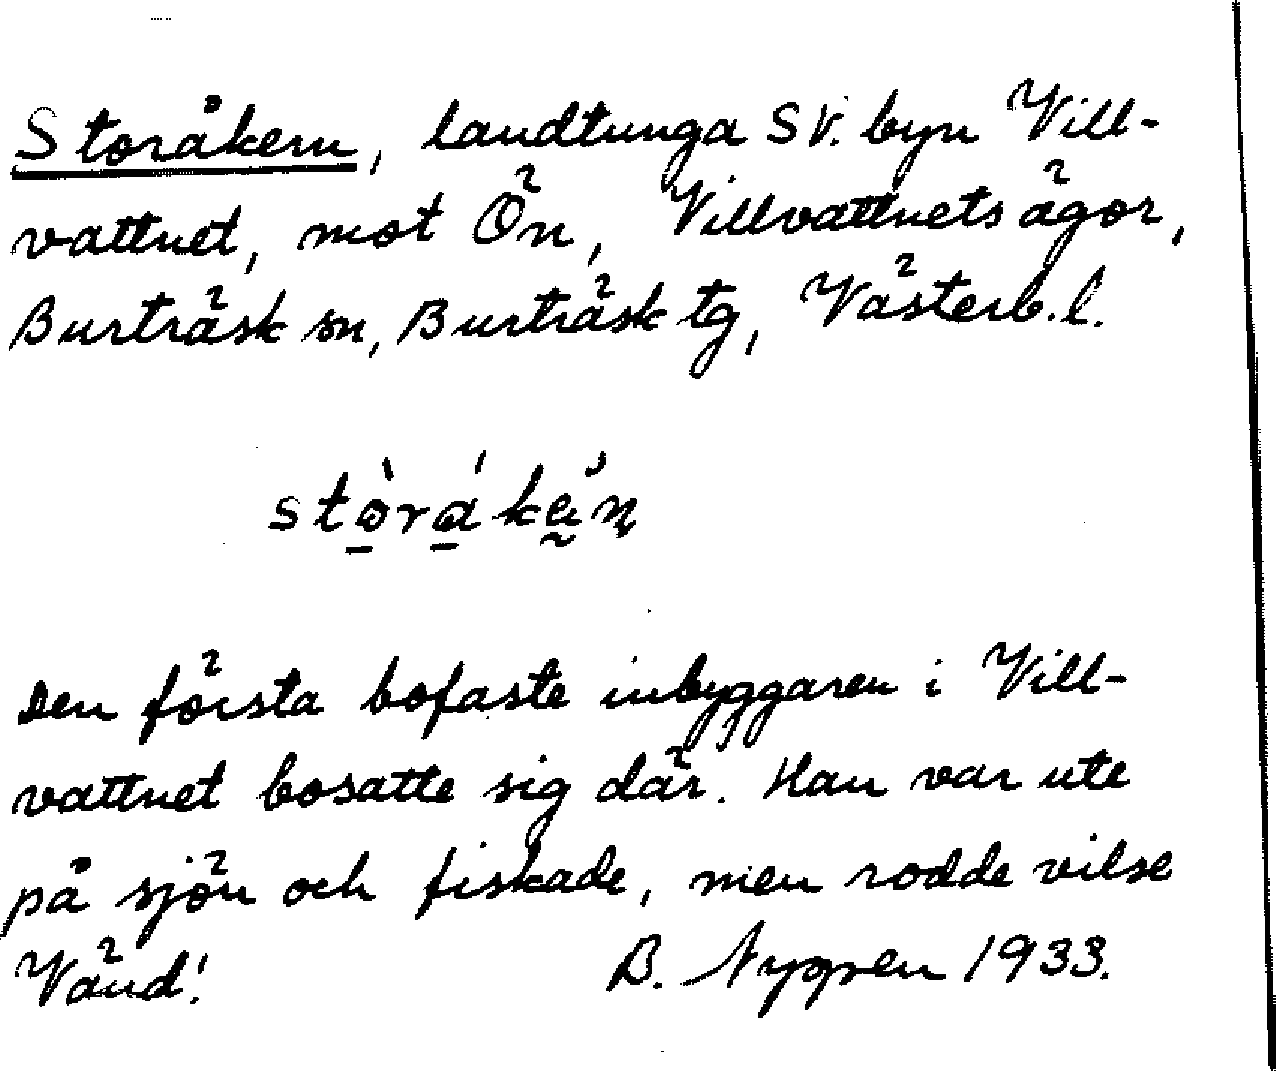 Storåkern, landtunga SV. byn Vill-
vattnet, mot Ön, Villvattnets ägor,
Burträsk sn, Burträsk tg, Västerb. l.
Den första bofaste inbyggaren i Vill-
vattnet bosatte sig där. Han var ute
på sjön och fiskade, men rodde vilse
Vänd! B. Nygren 1933.